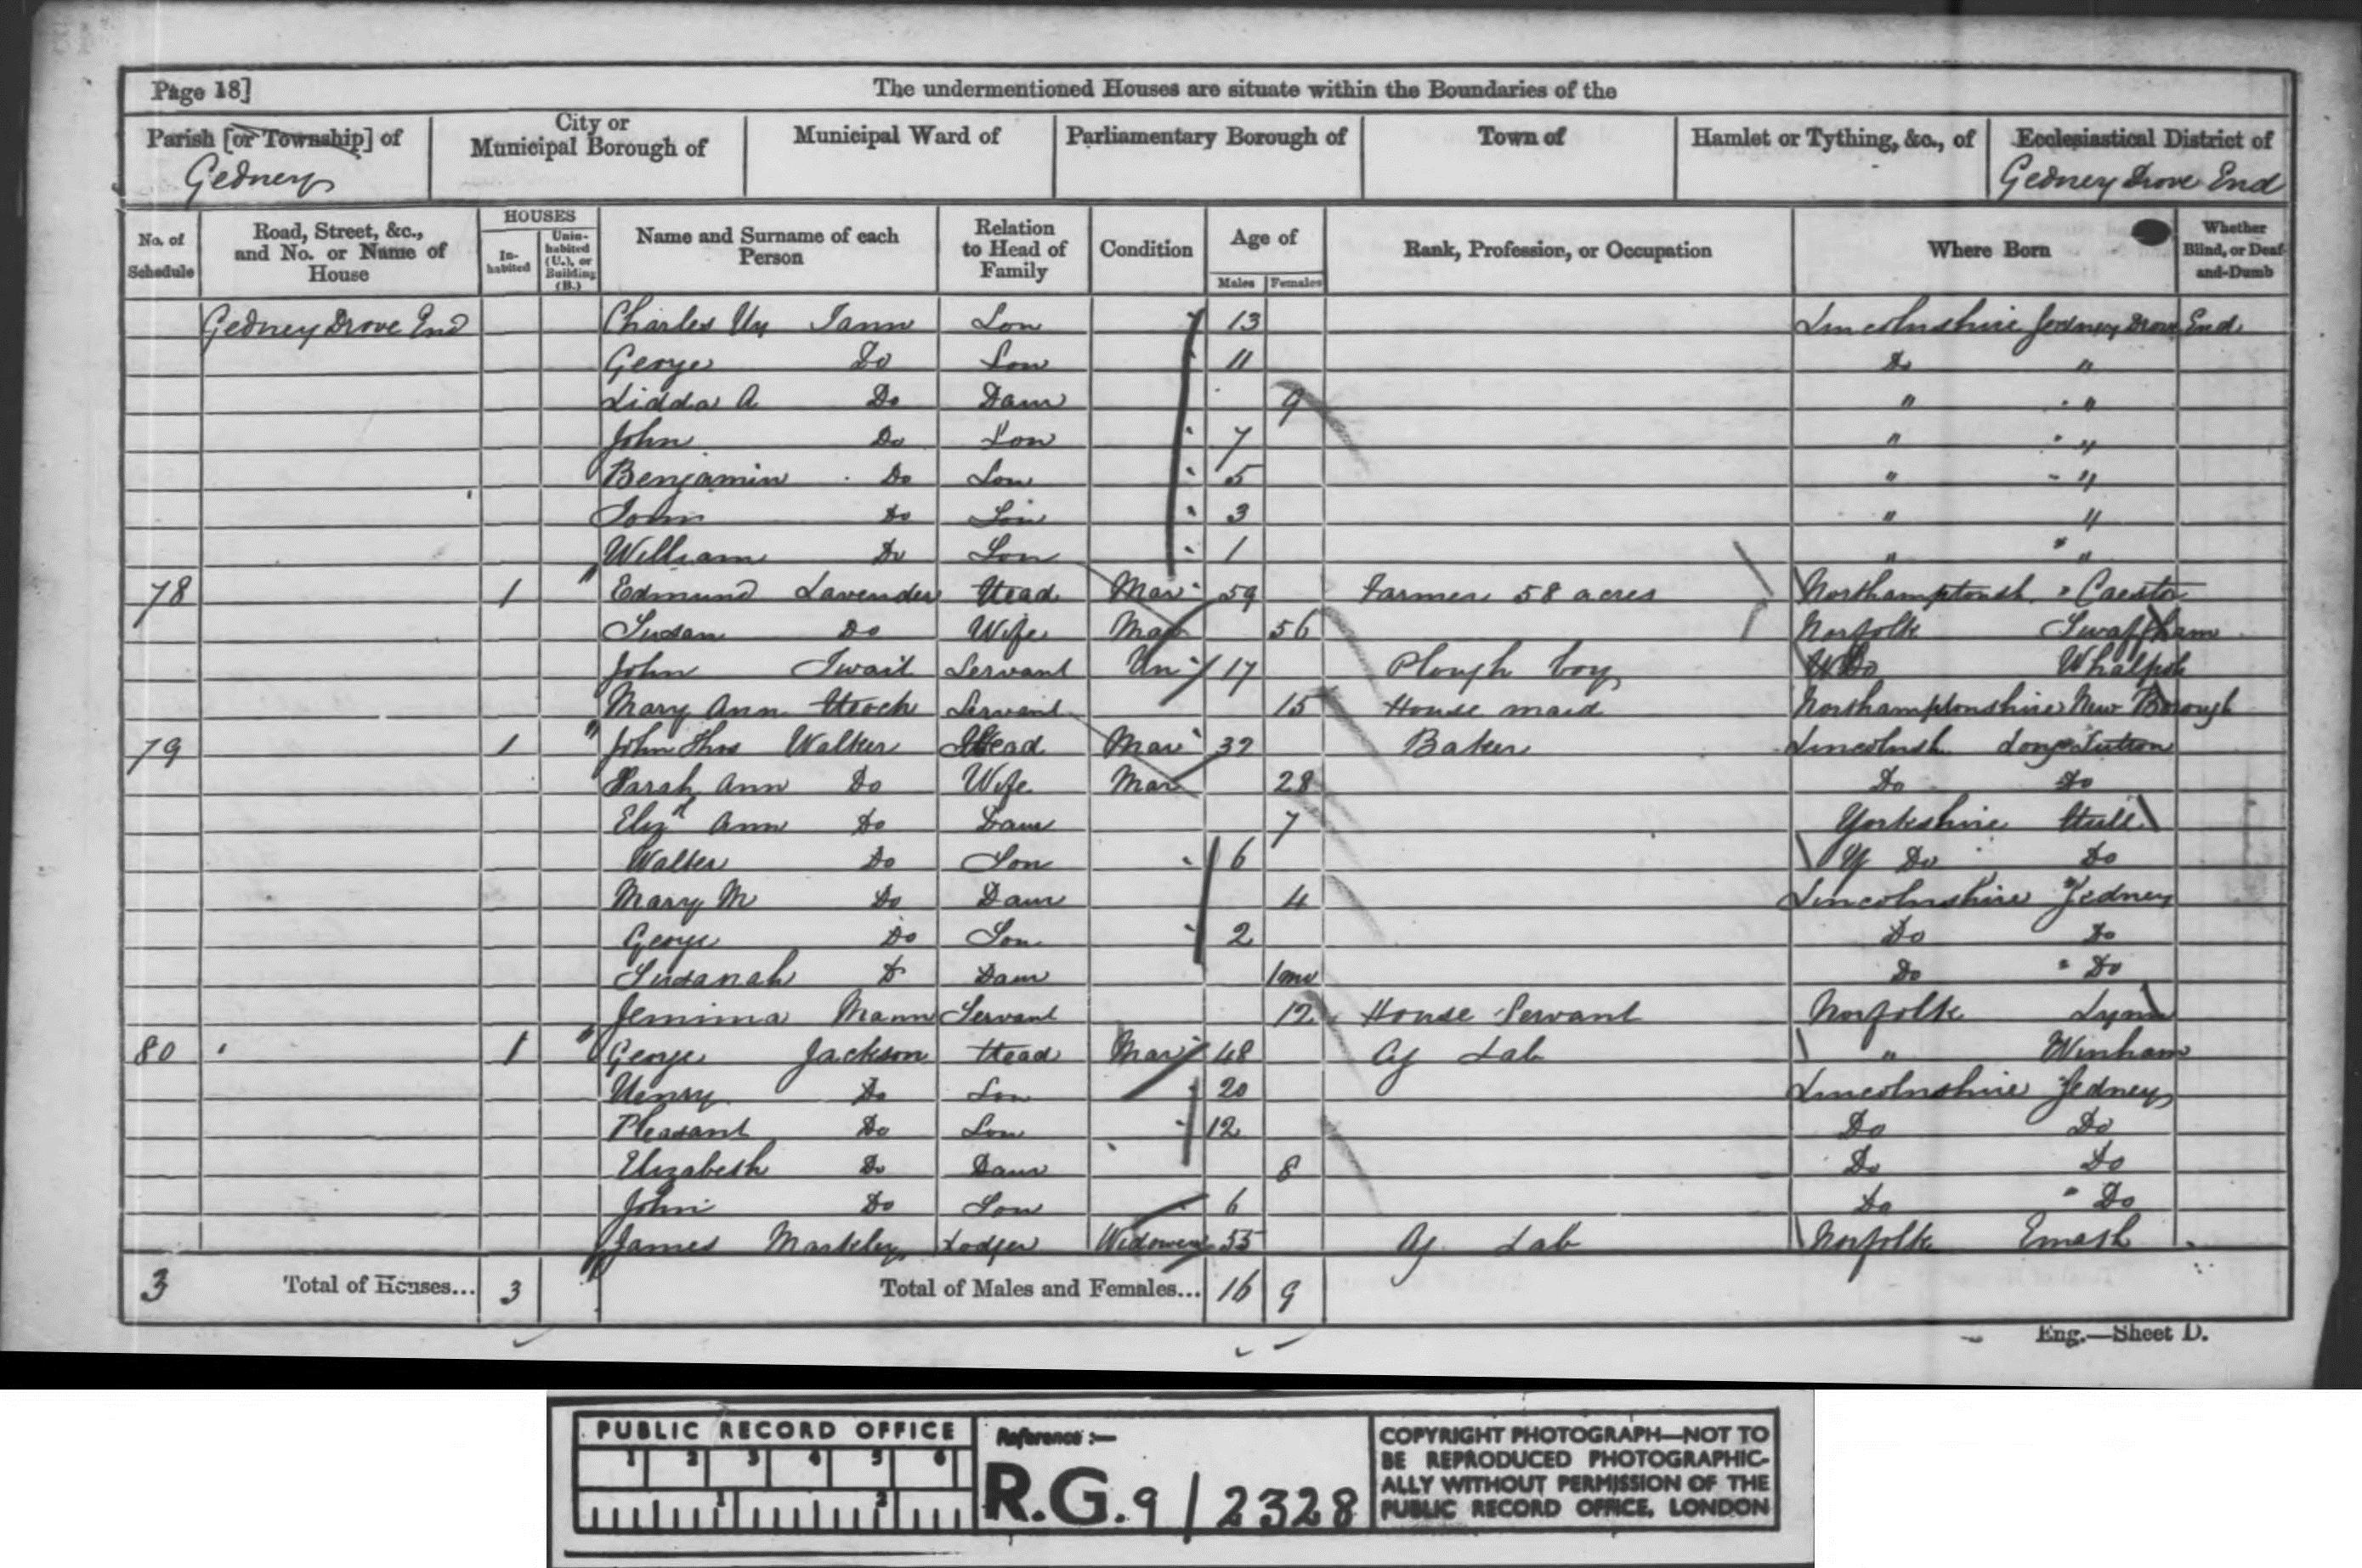 Page 18]
The undermentioned Houses are situate within the Boundaries of the
Parish [or Township] of
Gedney
City or Municipal Borough of
Municipal Ward of
Parliamentary Borough of
Town of
Hamlet or Tything, &c., of
Ecclesiastical District of
Gedney Drove End
No. of Schedule
Road, Street, &c., and No. or Name of House
HOUSES
In-habited
Unin-habited (U.), or Building (B.)
Name and Surname of each Person
Relation to Head of Family
Condition
Age of
Males
Females
Rank, Profession, or Occupation
Where Born
Whether Blind, or Deaf-and-Dumb
Gedney Drove End Charles Hy Son 13 Lincolnshire Gedney Drove End
George Do Son 11 Do "
Lidda A Do Daur 9 " "
John Do Son 7 " "
Benjamin Do Son 5 " "
Do Son 3 " "
William Do Son 1 " "
78 1 Edmund Lavender Head Mar 59 Farmer 58 acres Northamptonsh Caestor
Susan Do Wife Mar 56 Norfolk Swaffham
John Servant Un 17 Plough boy Do
Mary Ann Servant 15 House maid Northamptonshire New Borough
79 1 John Thos Walker Head Mar 32 Baker Lincolnsh Long Sutton
Sarah Ann Do Wife Mar 28 Do Do
Elizth Ann Do Daur 7 Yorkshire Hull
Walter Do Son 6 Y Do Do
Mary M Do Daur 4 Lincolnshire Gedney
George Do Son 2 Do Do
Susanah D Daur 1mo Do Do
Jemima Mann Servant 12 House Servant Norfolk Lynn
80 1 George Jackson Head Mar 48 Ag Lab " Winham
Henry Do Son 20 Lincolnshire Gedney
Pleasant Do Son 12 Do Do
Elizabeth Do Daur 8 Do Do
John Do Son 6 Do Do
James Markley Lodger Widower 55 Ag Lab Norfolk
3 Total of Houses... 3 Total of Males and Females... 16 9
Eng.—Sheet D.
PUBLIC RECORD OFFICE
1 2 3 4 5 6
1 2
Reference:—
R.G. 9/2328
COPYRIGHT PHOTOGRAPH—NOT TO
BE REPRODUCED PHOTOGRAPHIC-
ALLY WITHOUT PERMISSION OF THE
PUBLIC RECORD OFFICE, LONDON